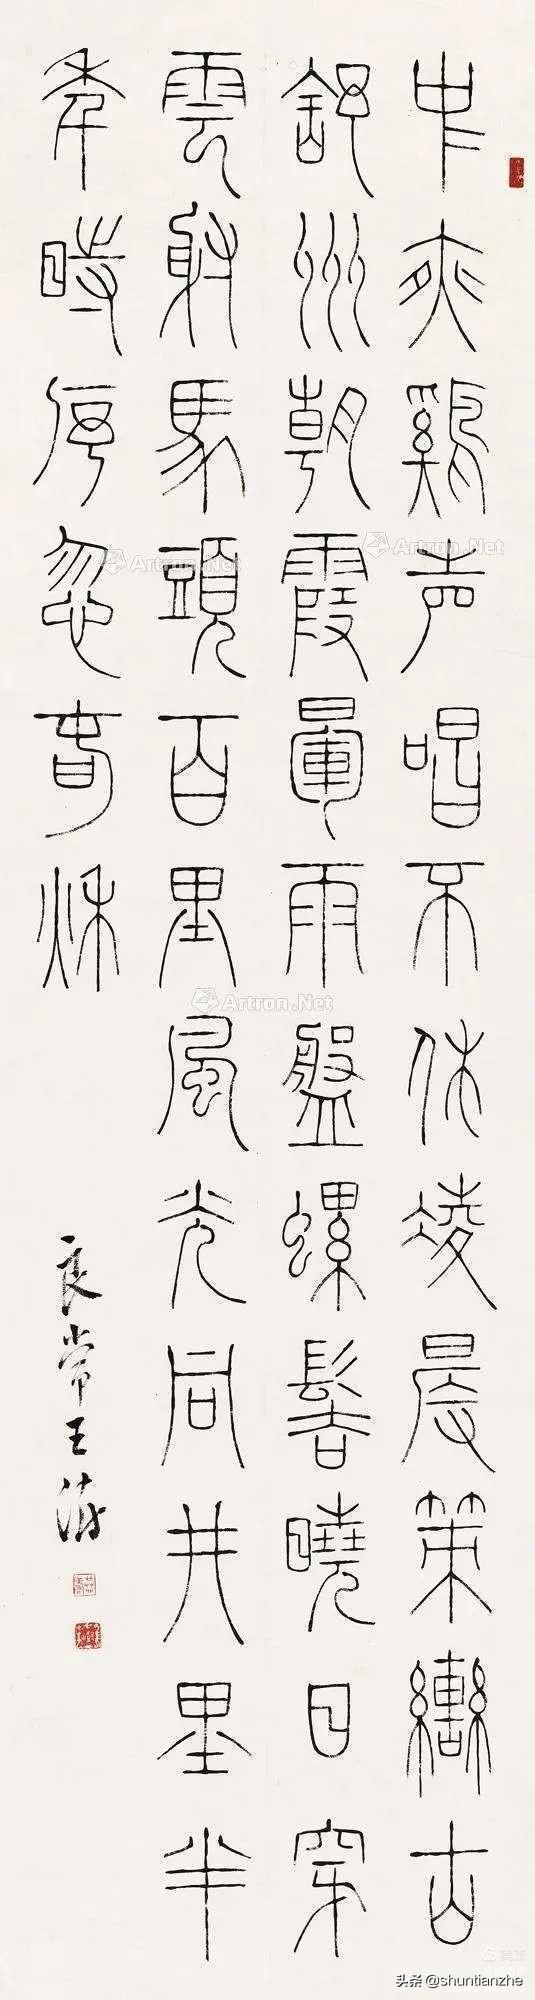 雞声唱不休凌晨策轡古
舒州朝霞暈雨盤螺髻曉日穿
雲射馬頭百里風光同井里半
年時序忽春秋
良常王澍
Artron.Net
Artron.Net
Artron.Net
头条 @shuntianzhe